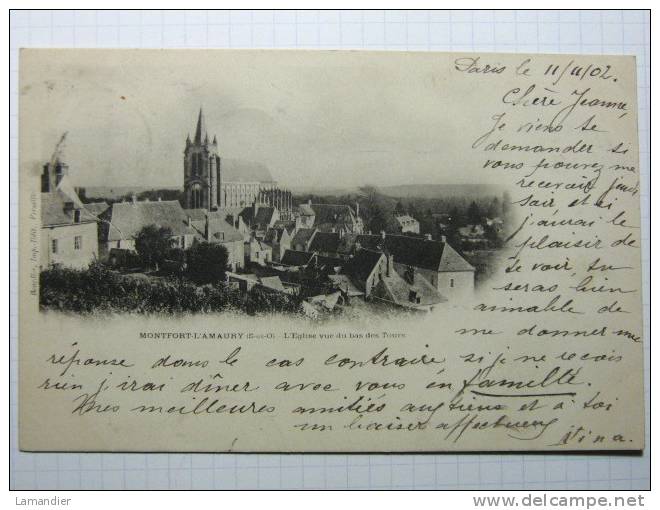 Paris le 11/11/02.
Chère Jeanne,
Je viens te
demander si
vous pouvez me
recevoir jeudi
soir et si
j'aurai le
plaisir de
te voir, tu
seras bien
aimable de
me donner une
réponse dans le cas contraire si je ne reçois
rien j'irai dîner avec vous en famille.
Mes meilleures amitiés aux tiens et à toi
un baiser affectueux
Nina.
MONTFORT-L'AMAURY (S-et-O) - L'Eglise vue du bas des Tours
Imp.-Edit.
Lamandier
http://www.delcampe.net